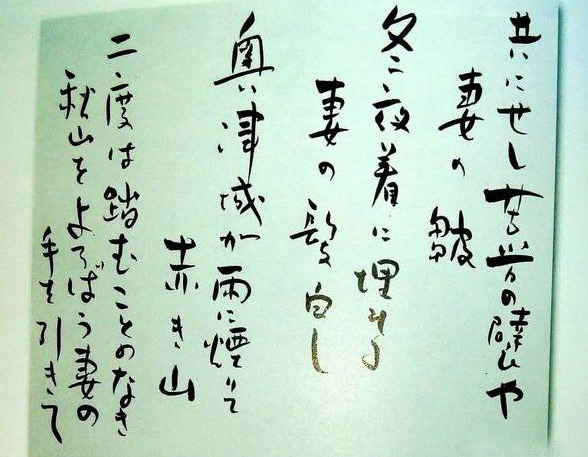 共にせし苦労の襞や
妻の皺
冬夜着に埋れる
妻の髪白し
奥津城か雨に煙りて
赤き山
二度は踏むことのなき
秋山をよろばう妻の
手を引きて